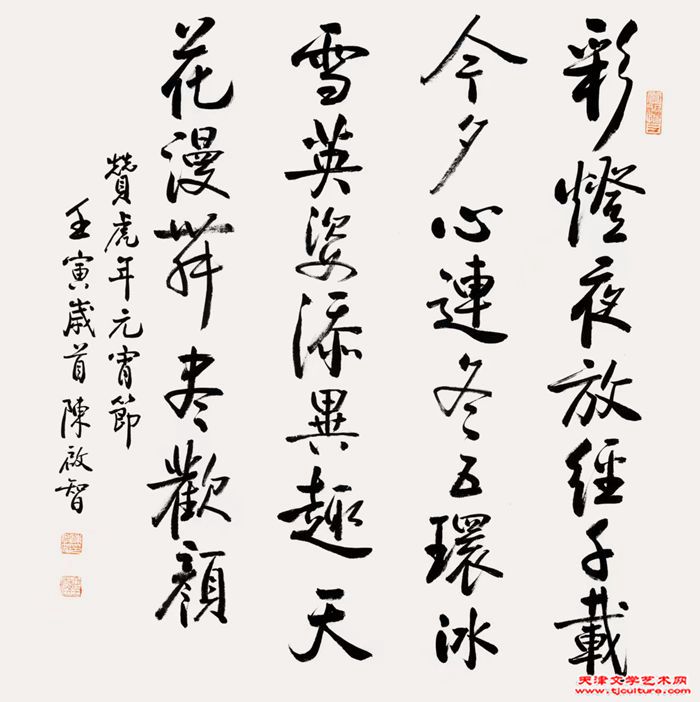 彩燈夜放經千載
今夕心連冬五環冰
雪英姿添異趣天
花漫舞尽歡顔
贊虎年元宵節
壬寅歲首陳啟智
天津文学艺术网
www.tjculture.com